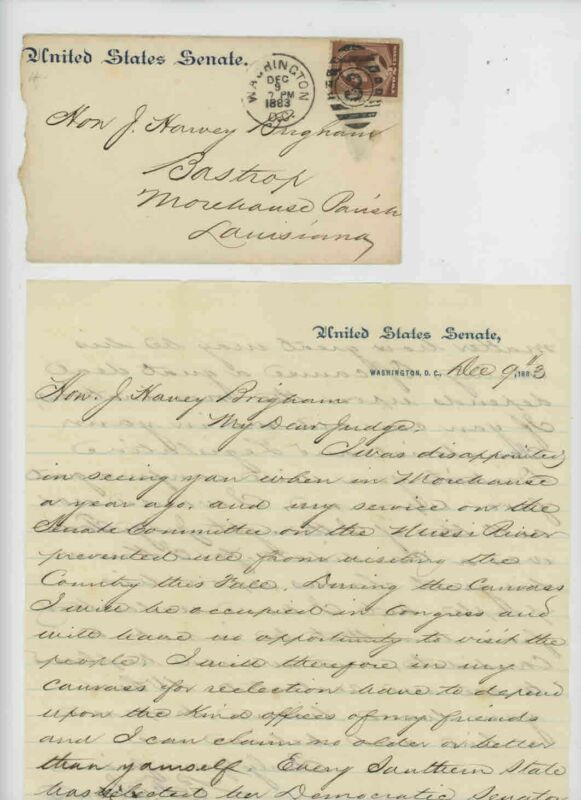 United States Senate.
WASHINGTON
DEC
9
7 PM
1883
D.C.
Hon J. Harvey Brigham
Bastrop
Morehouse Parish
Louisiana
United States Senate,
WASHINGTON, D.C., Dec 9th, 1883
Hon. J. Harvey Brigham
My Dear Judge,
I was disappointed
in seeing you when in Morehouse
a year ago, and my service on the
Senate Committee on the Missi River
prevented me from visiting the
Country this Fall. During the Canvass
I will be occupied in Congress and
will have no opportunity to visit the
people. I will therefore in my
canvass for relection have to depend
upon the kind offices of my friends
and I can claim no older or better
than yourself. Every Southern State
has elected her Democratic Senator